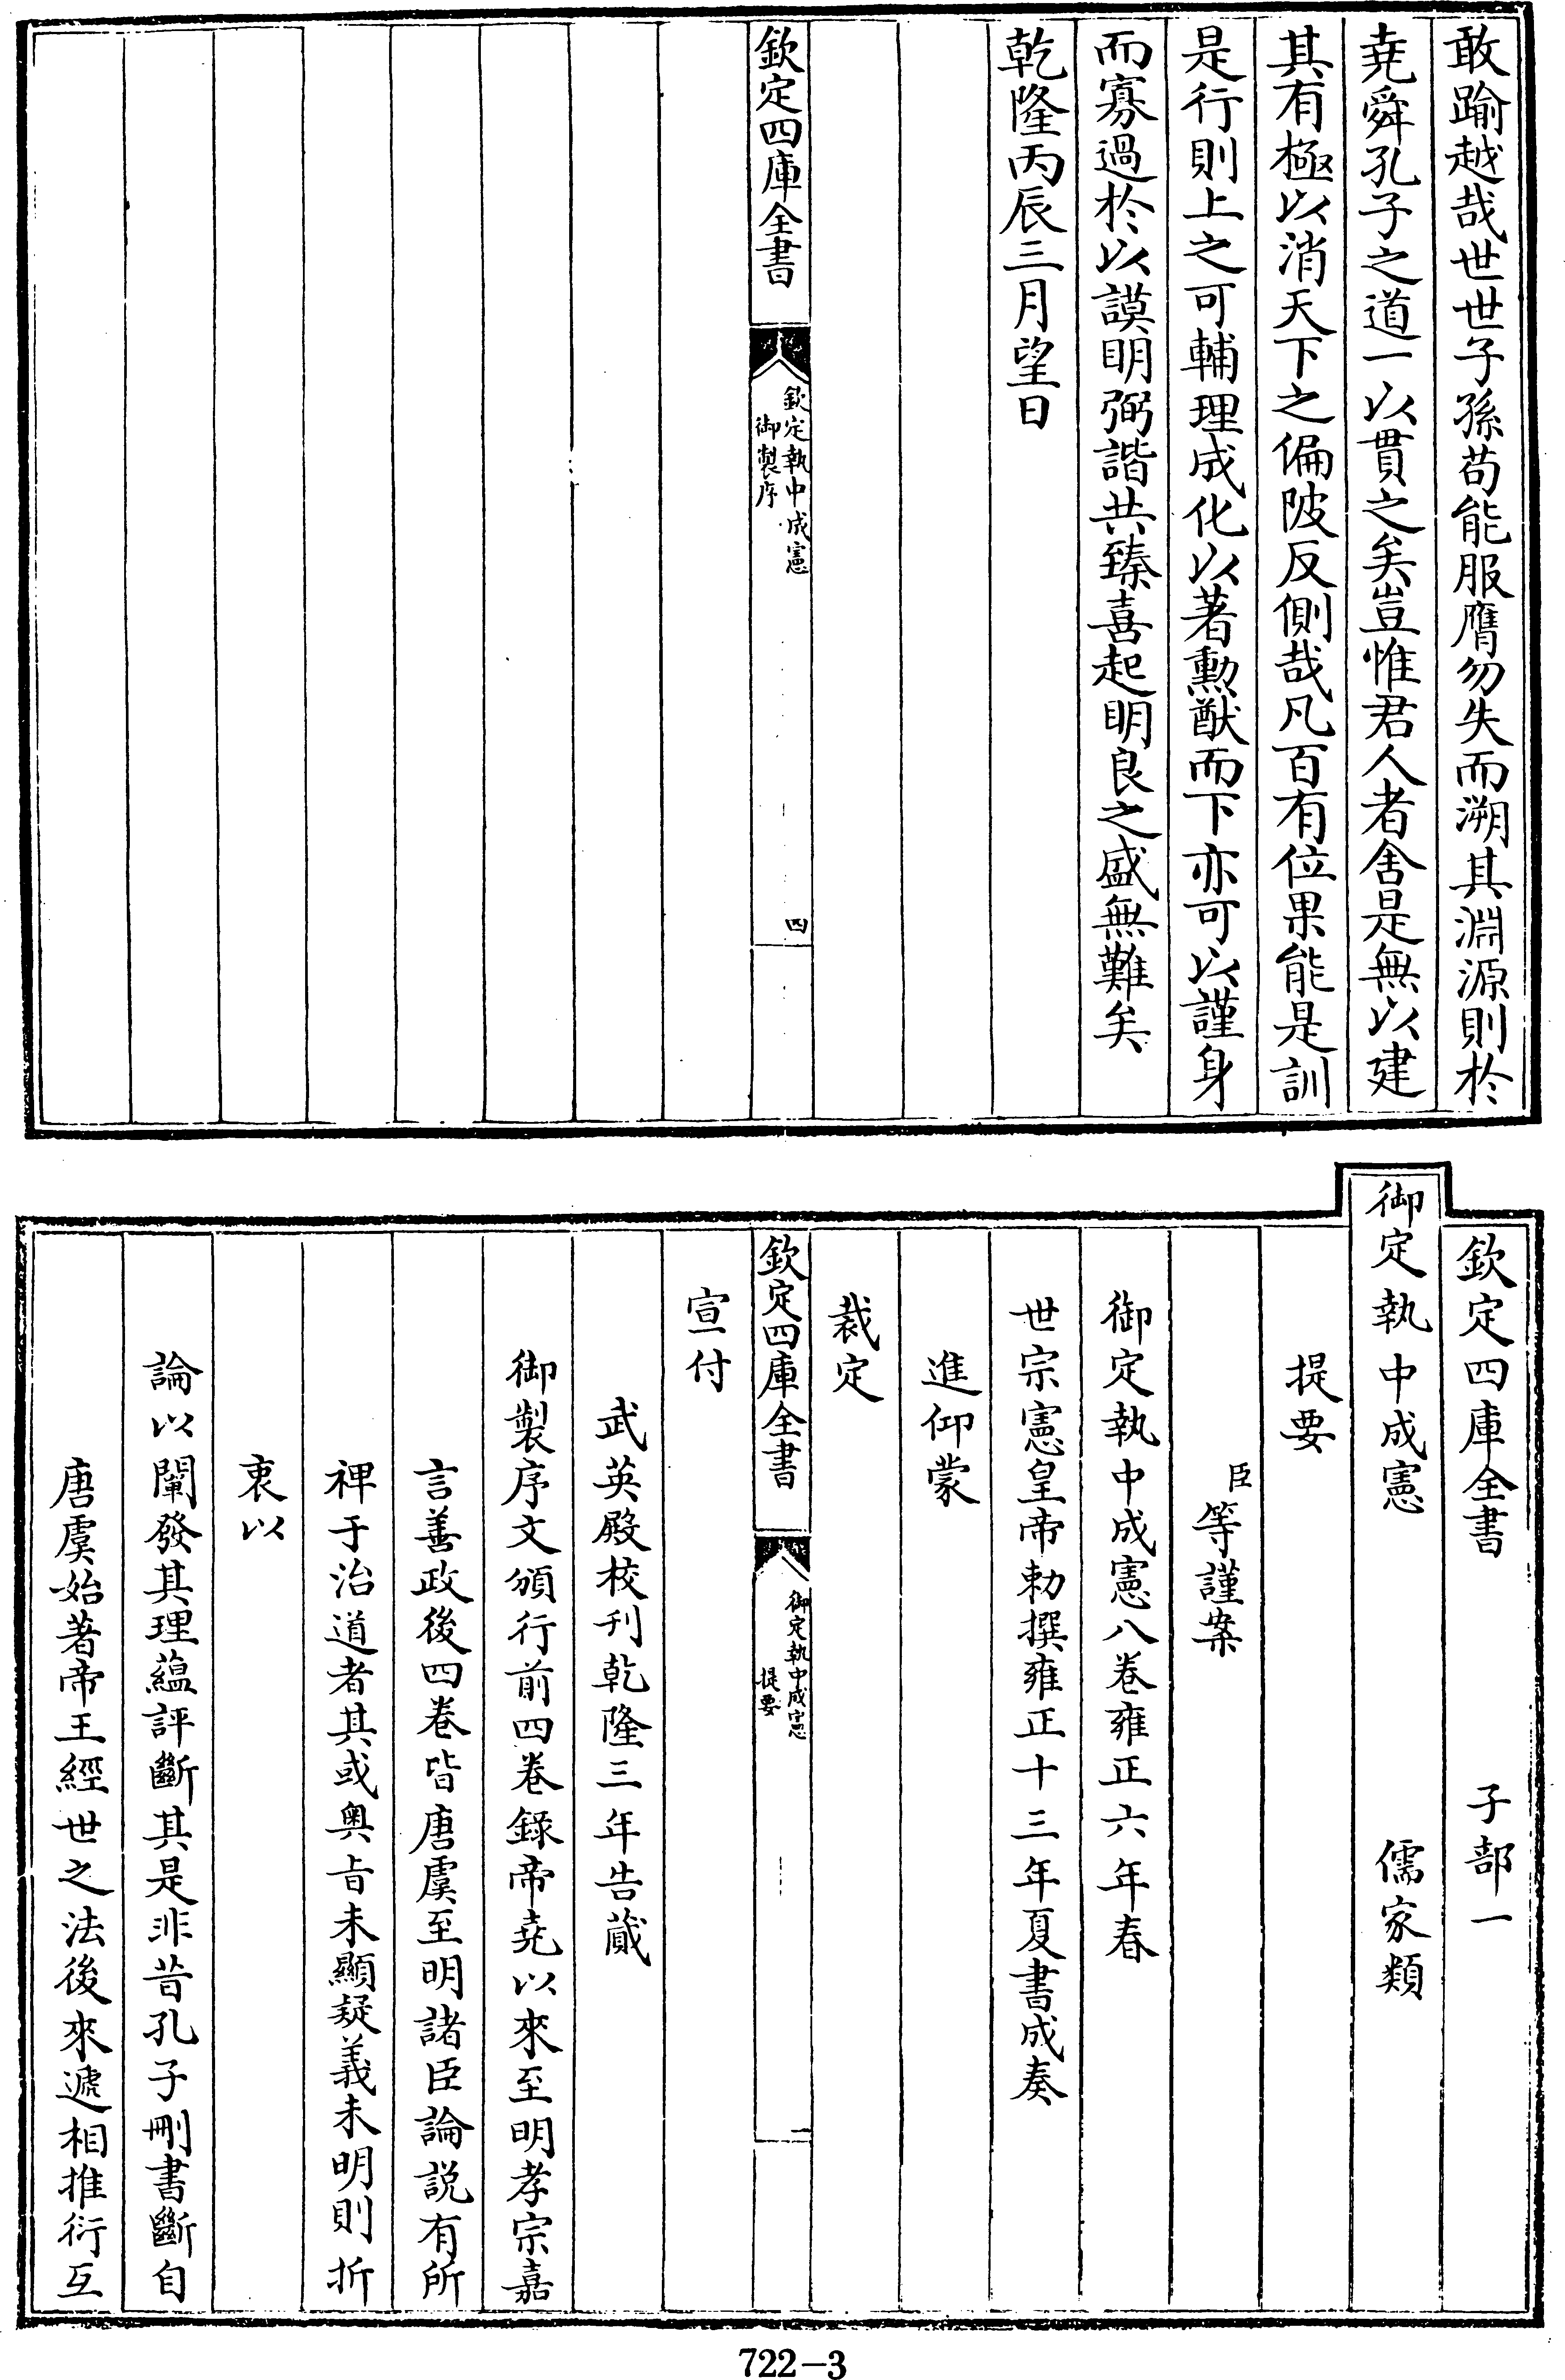 敢踰越哉世世子孫苟能服膺勿失而溯其淵源則於
堯舜孔子之道一以貫之矣豈惟君人者舍是無以建
其有極以消天下之偏陂反側哉凡百有位果能是訓
是行則上之可輔理成化以著勳猷而下亦可以謹身
而寡過於以謨明弼諧共臻喜起明良之盛無難矣
乾隆丙辰三月望日
欽定四庫全書
欽定執中成憲
御製序
四
欽定四庫全書 子部一
御定執中成憲 儒家類
提要
臣等謹案
御定執中成憲八卷雍正六年春
世宗憲皇帝勅撰雍正十三年夏書成奏
進仰蒙
裁定
欽定四庫全書
御定執中成憲
提要
一
宣付
武英殿校刋乾隆三年告蕆
御製序文頒行前四卷錄帝堯以來至明孝宗嘉
言善政後四卷皆唐虞至明諸臣論説有所
裨于治道者其或奥㫖未顯疑義未明則折
衷以
論以闡發其理蘊評斷其是非昔孔子刪書斷自
唐虞始著帝王經世之法後來遞相推衍互
722-3